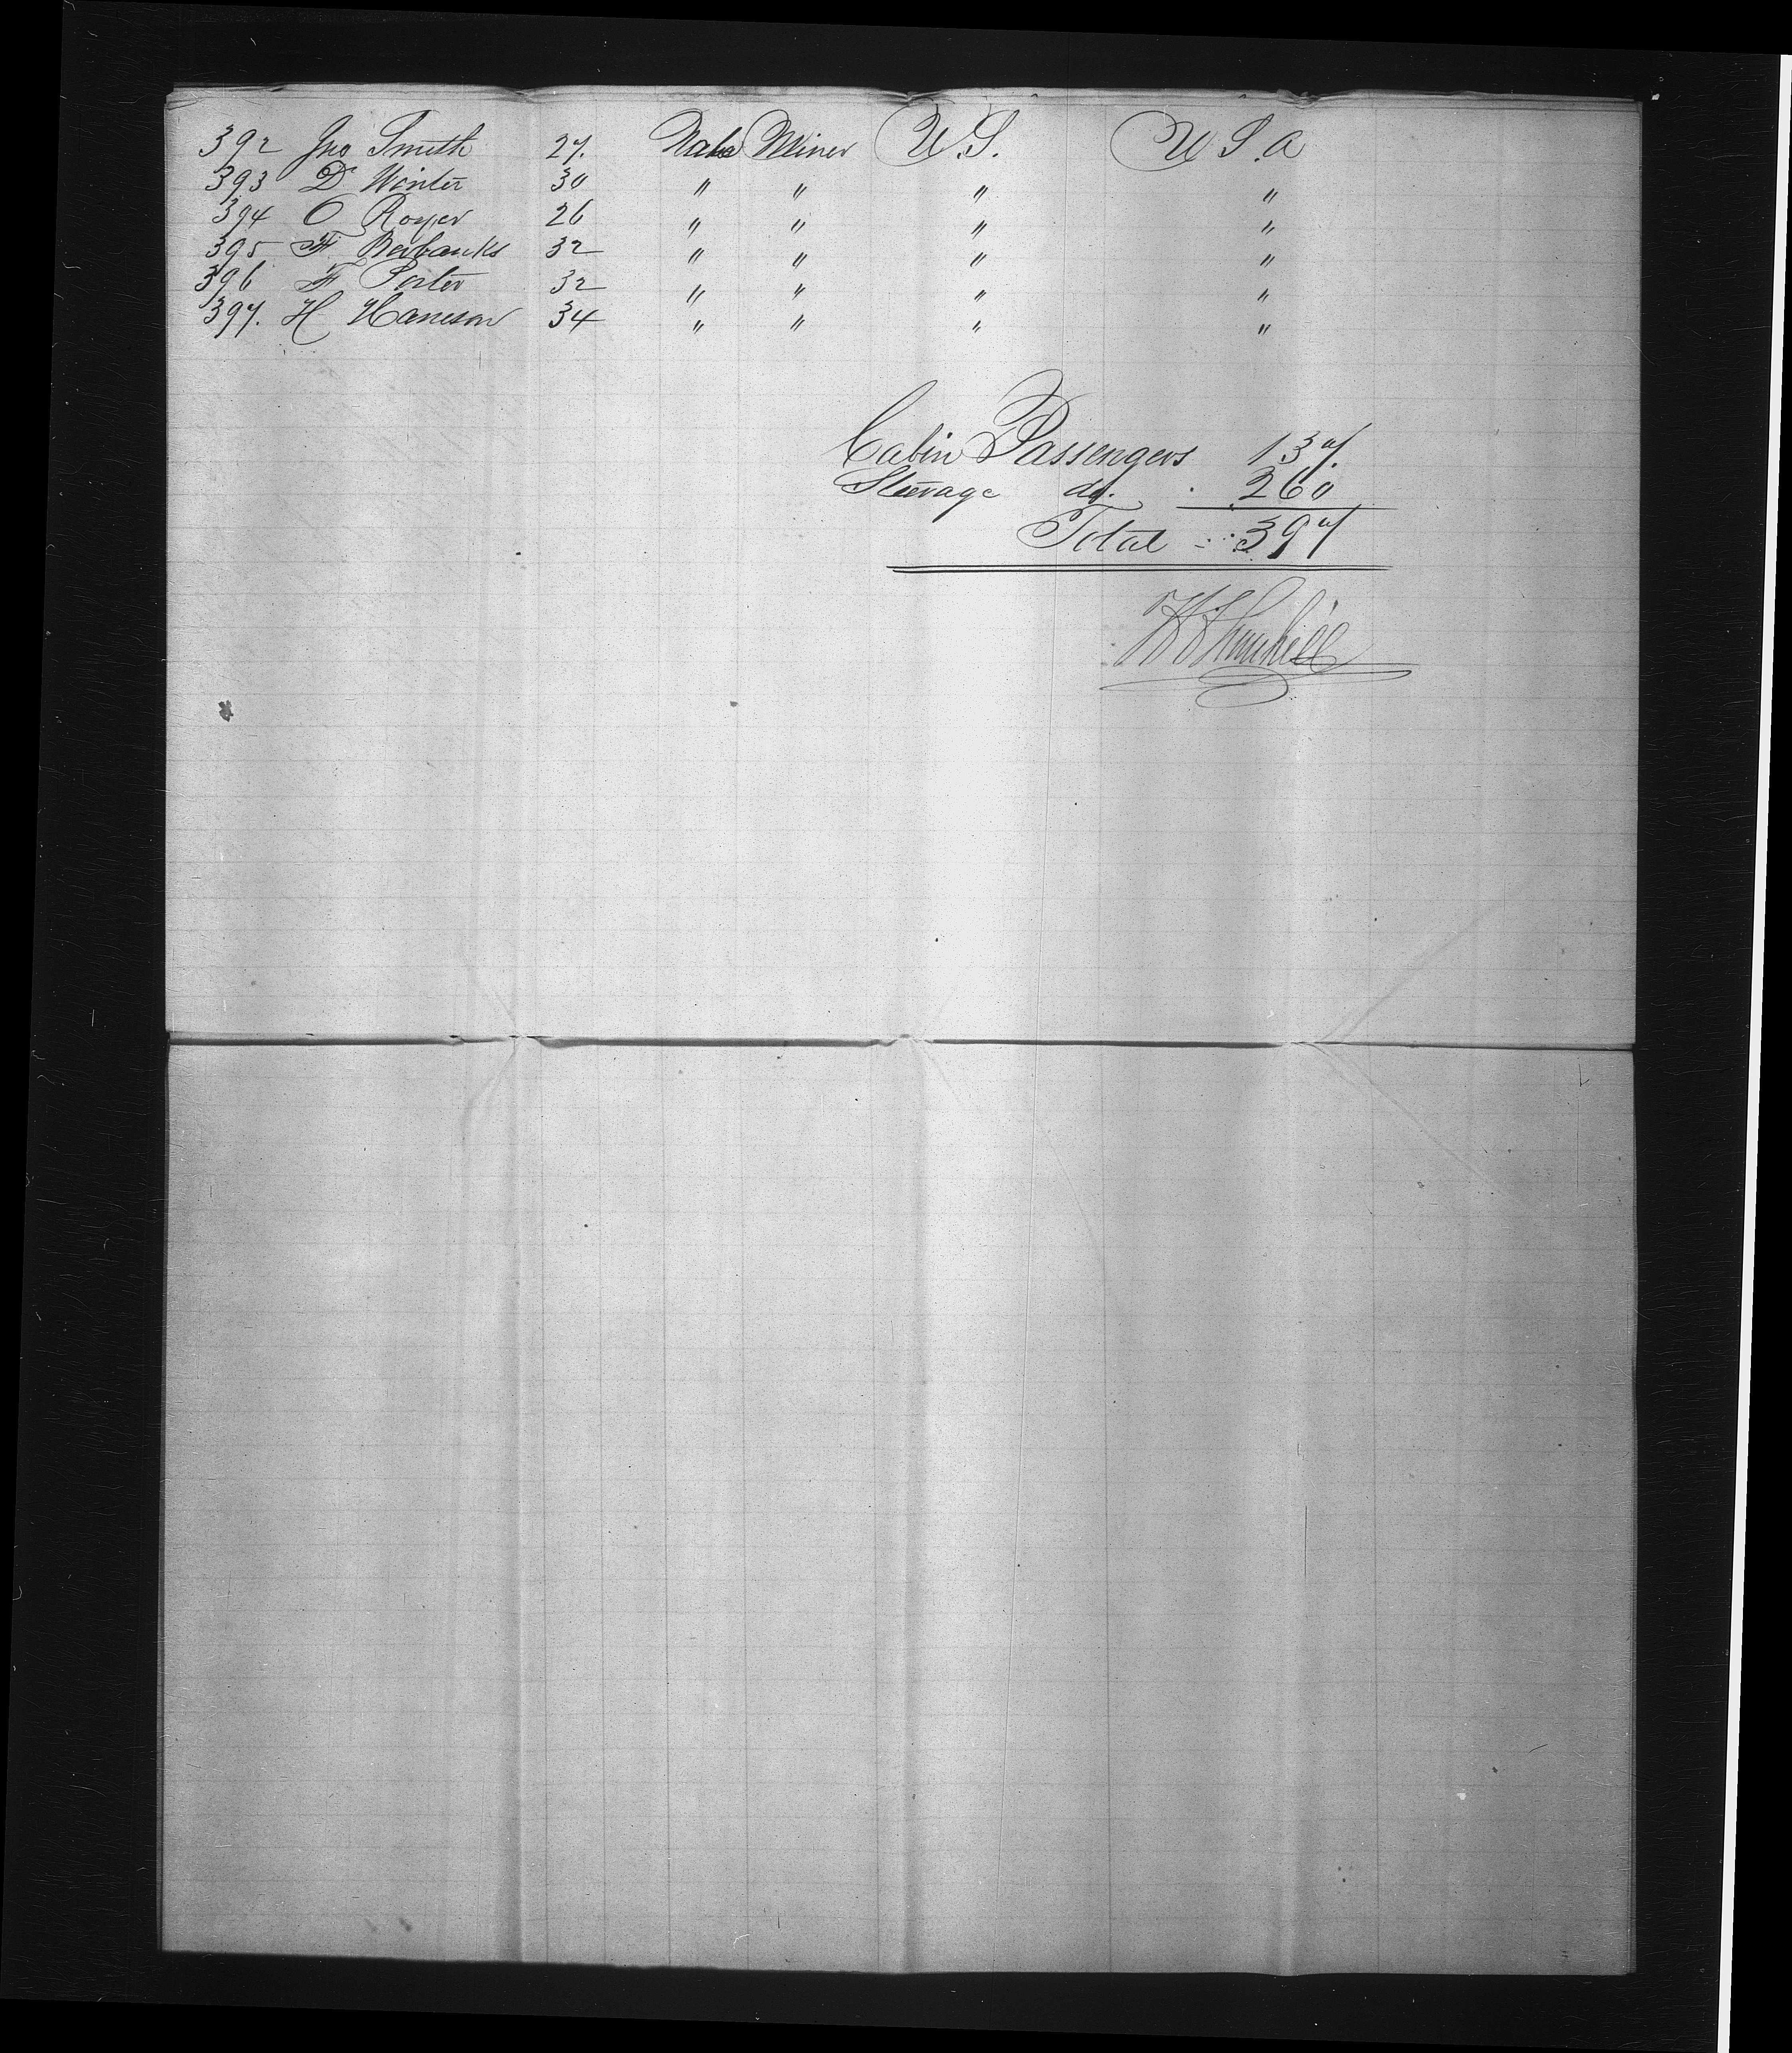 392 Jno Smith 27. Male Miner U.S. U S. A
393 D Winter 30 " " " "
394 O Royer 26 " " " "
395 F. Burbanks 32 " " " "
396 F Porter 32 " " " "
397. H Hanison 34 " " " "
Cabin Passengers 137.
Steerage do. 260
Total 397